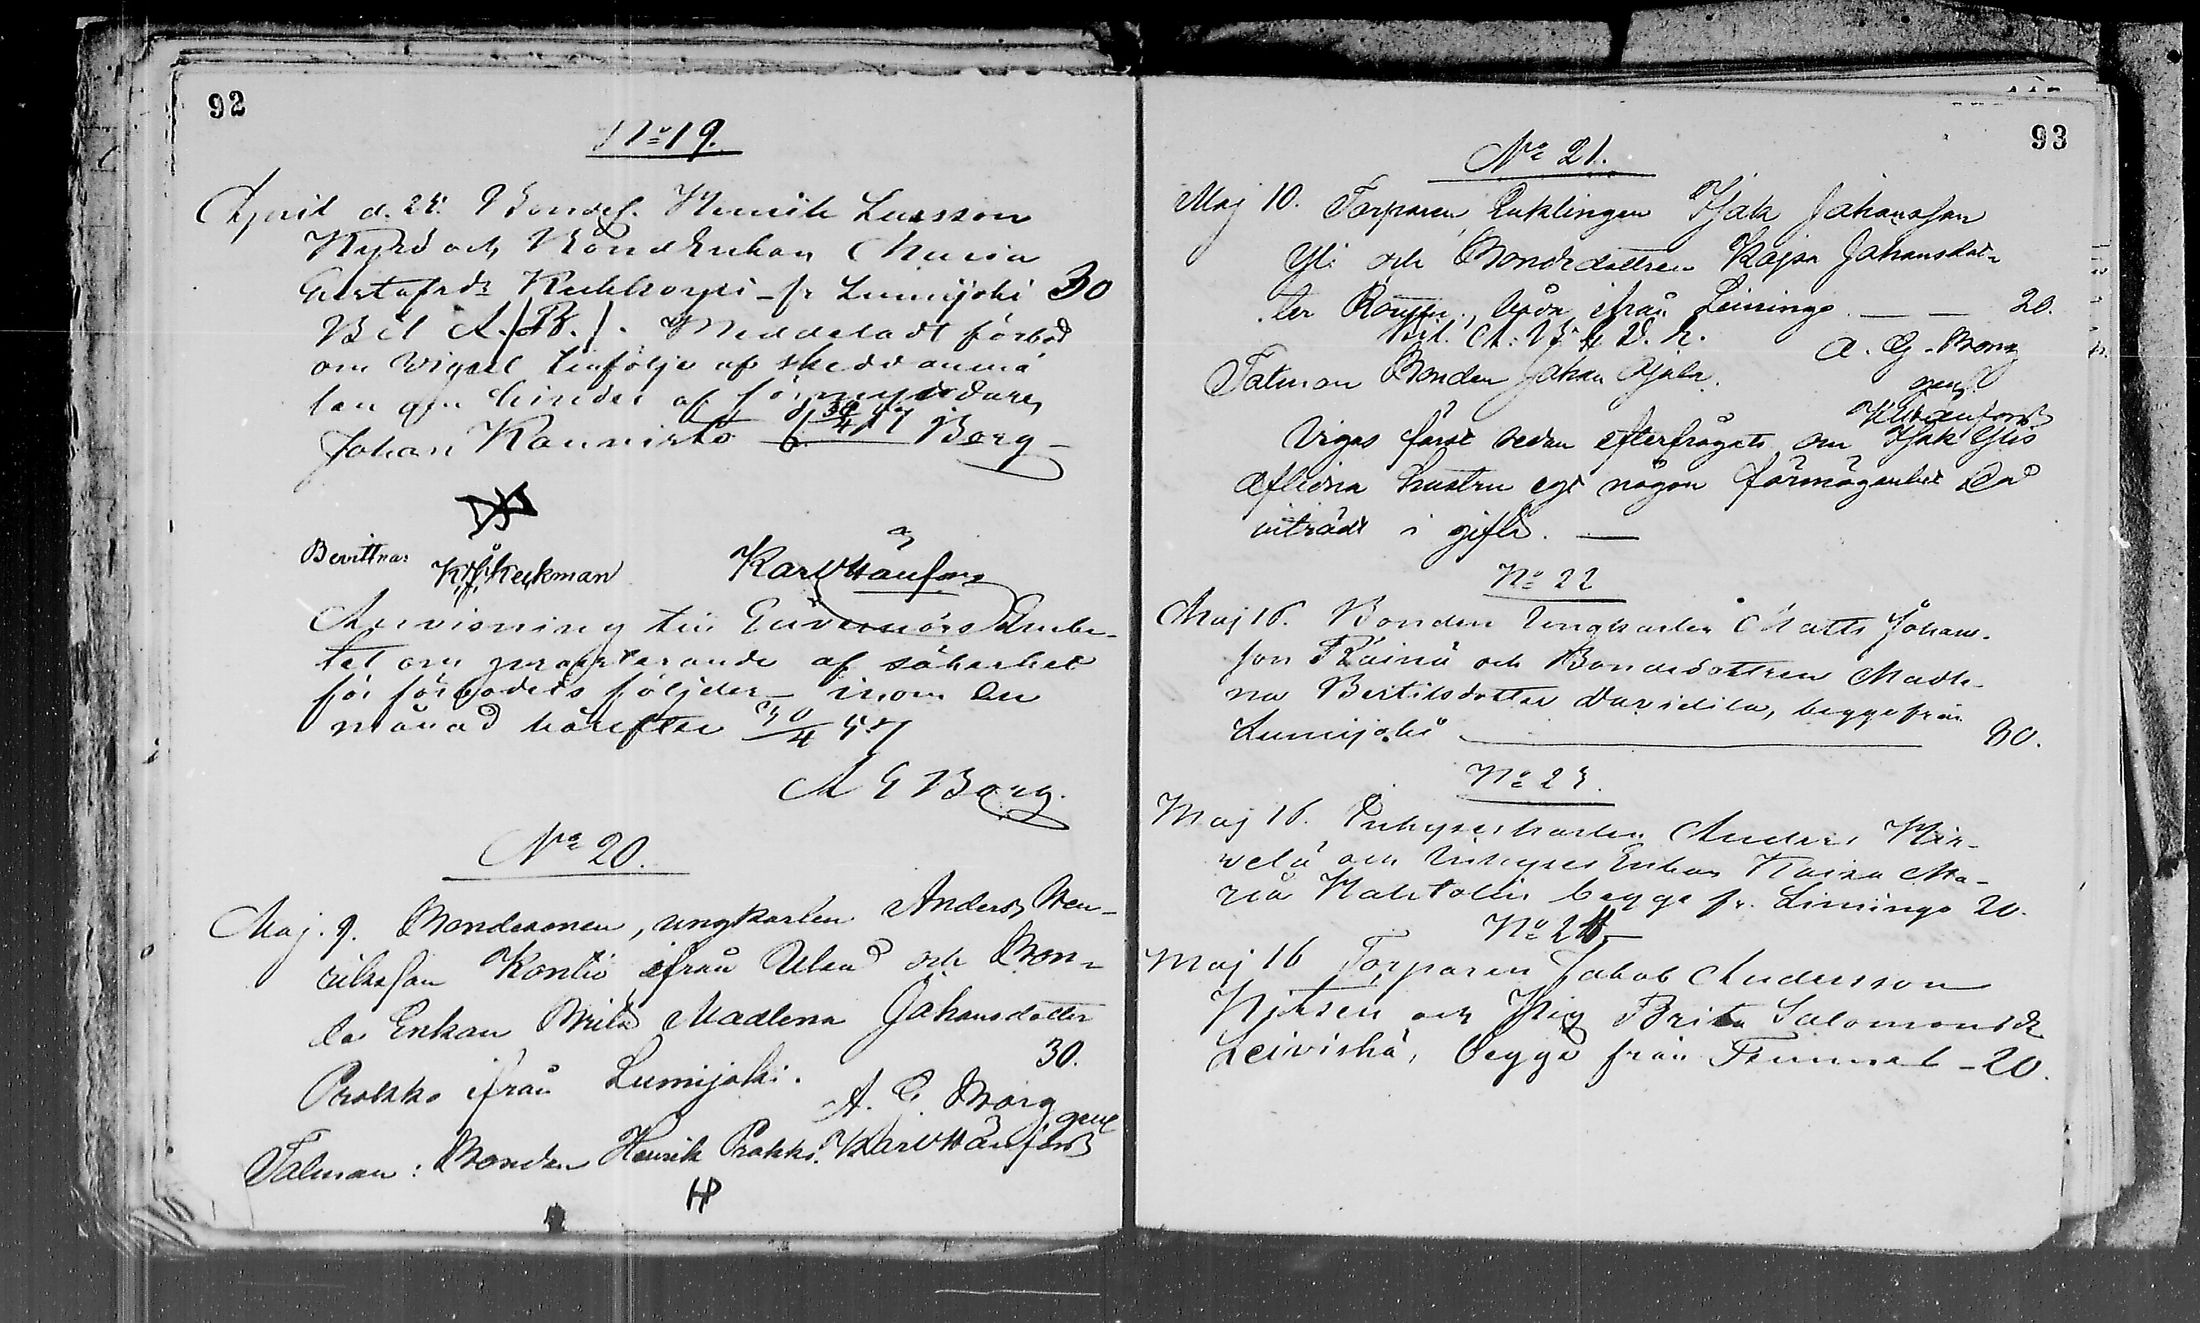 92
No 19.
April d. 25. Bondes. Henrik Larsson
Kyrö och Bondenkan Maria
Gustafsdr fr Lumijoki 30
Bil A. B. Meddeladt förbud
om vigsel tillfölje af skedd anmä
lan om hinder af förmyndaren
Johan Kannisto 30/4 57 Borg
Bevittna:
Keckman Karl Hänfors
Anvisning till Guvernörs Embe-
tet om presterande af säkerhet
för förbudets följder inom en
månad härefter 30/4 57
A G Borg.
No 20.
Maj. 9. Bondesonen, ungkarlen Anders Hen-
riksson Kontio ifrån Uleå och Bon-
de Enkan Brita Madlena Johansdotter
Prokko ifrån Lumijoki. 30.
A. G. Borg
genom
Talman: Bonden Henrik Prokko. Karl Hänfors
HP
93
No 21.
Maj 10. Torparen, Enklingen Isak Johansson
Yli och Bondedottren Kajsa Johansdot-
ter, båda ifrån Limingo — — 20.
Bil. A.
A. G. Borg
Talman Bonden Johan
gen
Viges först sedan efterfrågats om Isak Ylis
aflidna hustru egt någon förmögenhet då
inträdt i gifte. —
No 22
Maj 16. Bonden Ungkarlen Matts Johans-
son Räinä och Bondedottren Madle-
na Bertilsdotter Davidila, begge från
Lumijoki 30.
No 23.
Maj 16. Inhyseskarlen Anders Hir-
velä och Inhyses Enkan Kaisa Ma-
ria begge fr. Limingo 20.
No 24.
Maj 16 Torparen Jakob Andersson
och Pig Brita Salomonsdr
Leiviskä, begge från Temmes - 20.